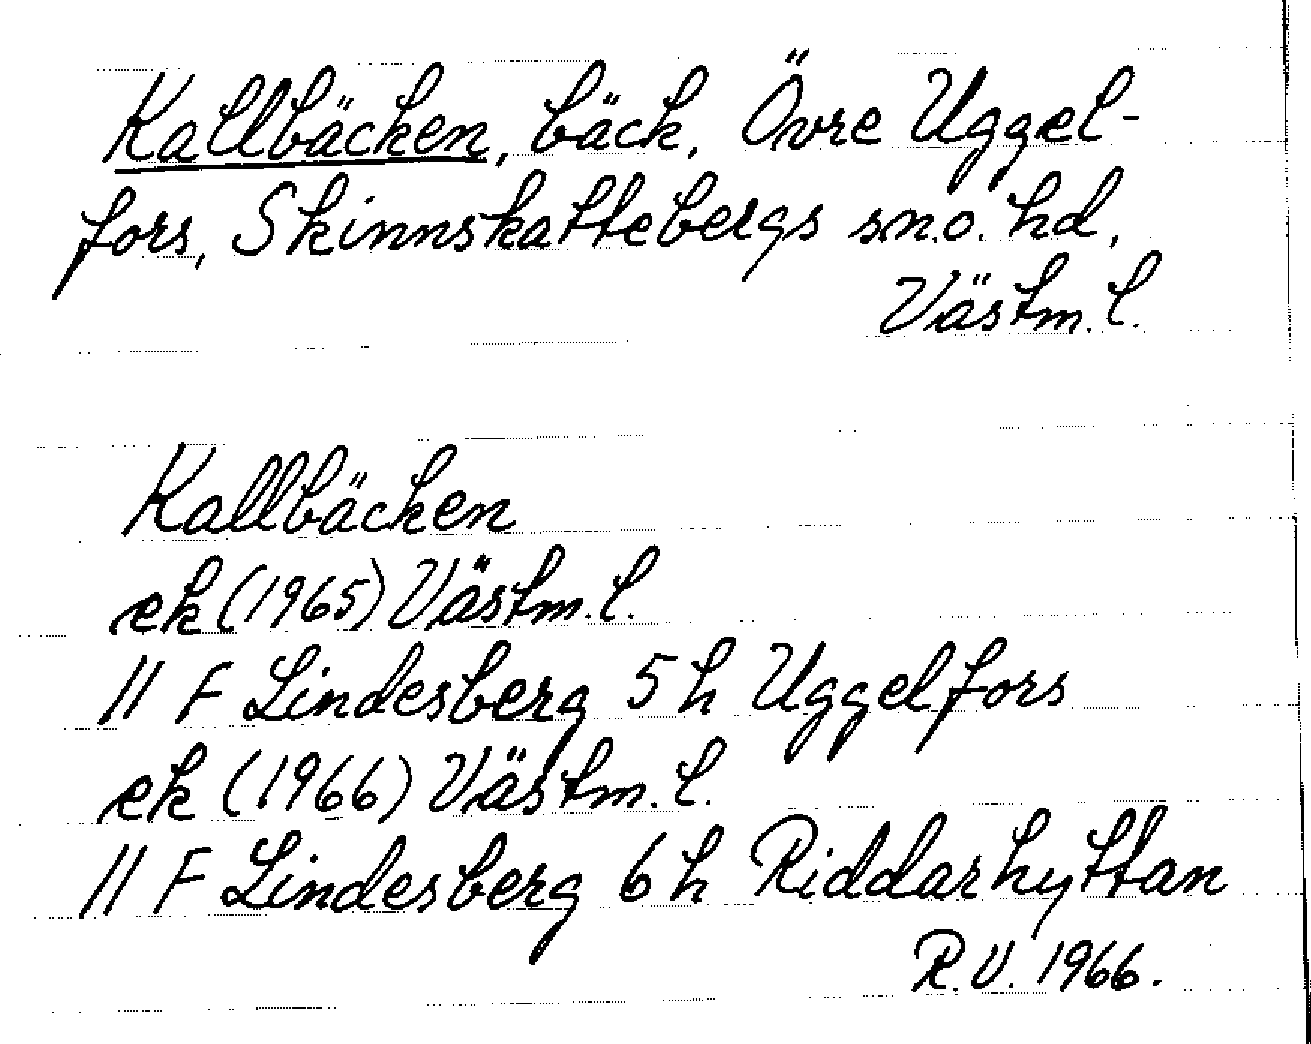 Kallbäcken, bäck, Övre Uggel-
fors, Skinnskattebergs sn o. hd,
Västm. l.
Kallbäcken
ek (1965) Västm. l.
11 F Lindesberg 5 h Uggelfors
ek (1966) Västm. l.
11 F Lindesberg 6 h Riddarhyttan
R.V. 1966.